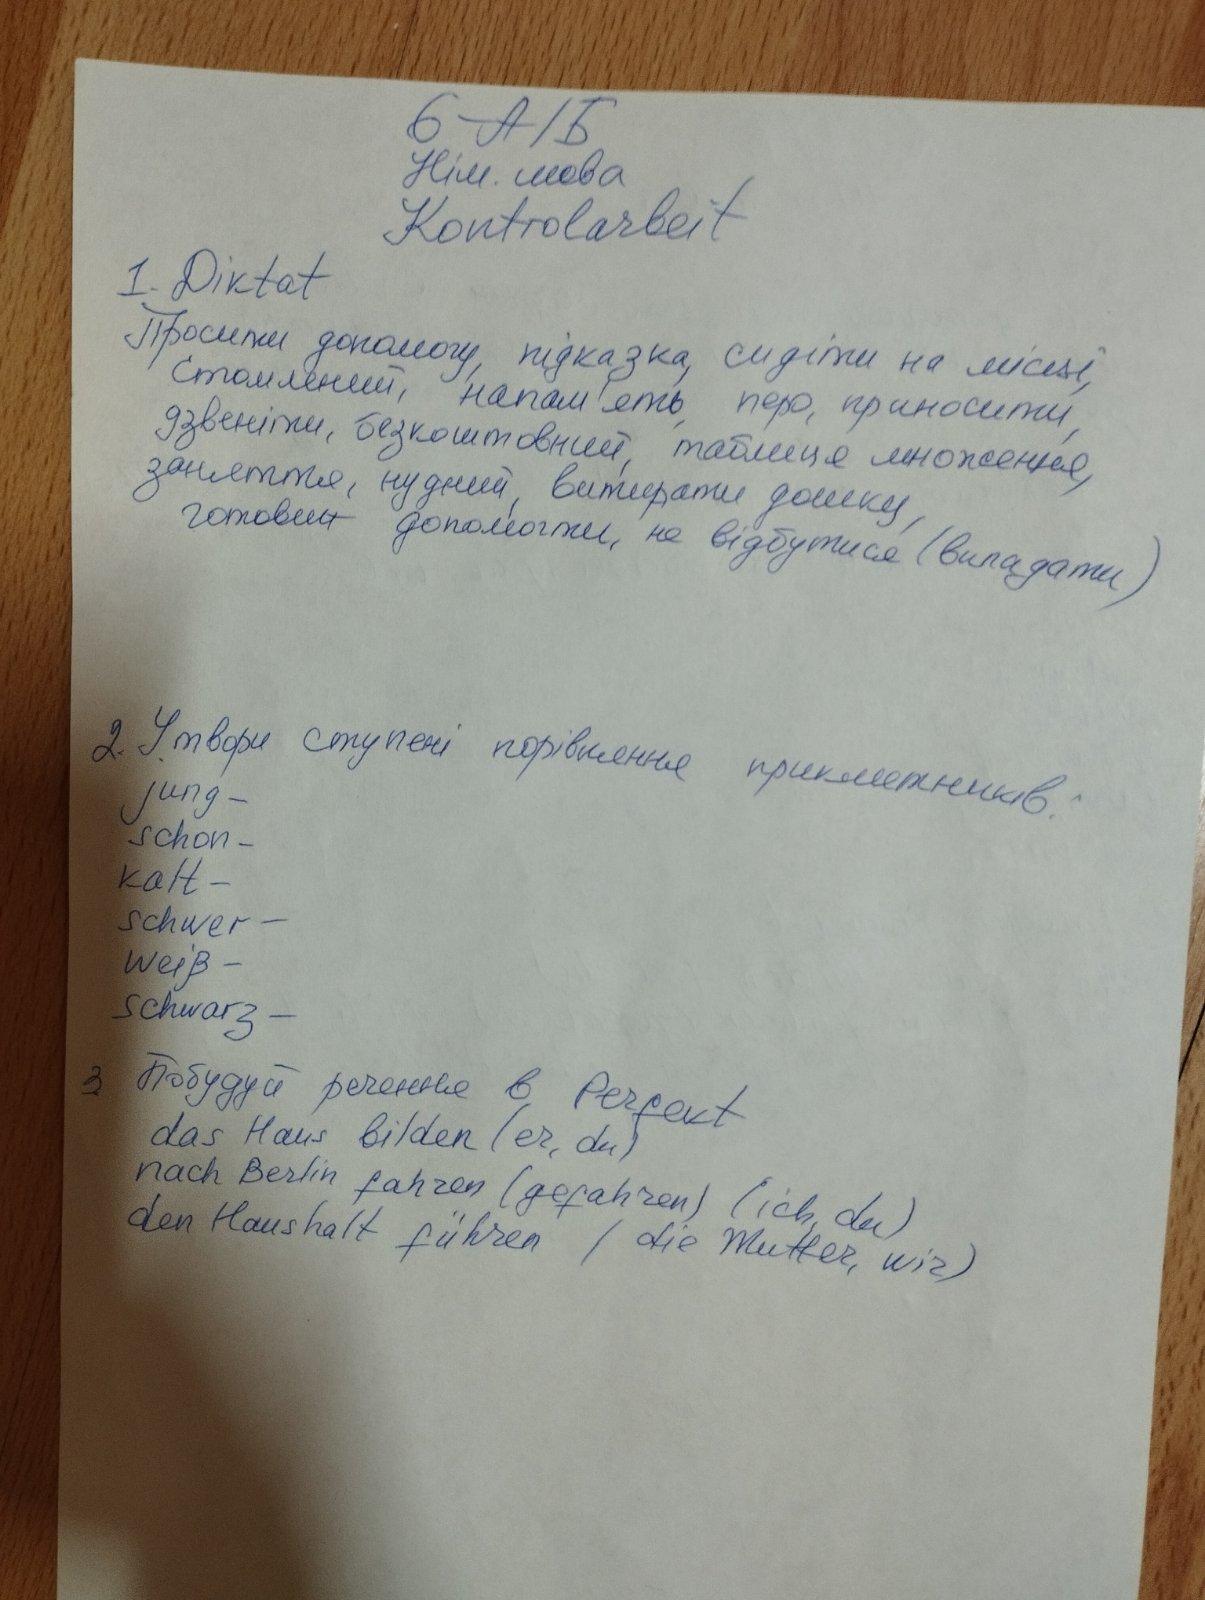 6-А/Б
Нім. мова
Kontrolarbeit
1. Diktat
Просити допомогу, підказка, сидіти на місці,
стомлений, напам'ять, перо, приносити,
дзвеніти, безкоштовний, таблиця множення,
заняття, нудний, витирати дошку,
готовий допомогти, не відбутися (випадати)
2. Утвори ступені порівняння прикметників:
jung –
schon –
kalt –
schwer –
weiß –
schwarz –
3 Побудуй речення в Perfekt
das Haus bilden (er, du)
nach Berlin fahren (gefahren) (ich, du)
den Haushalt führen / die Mutter, wir)